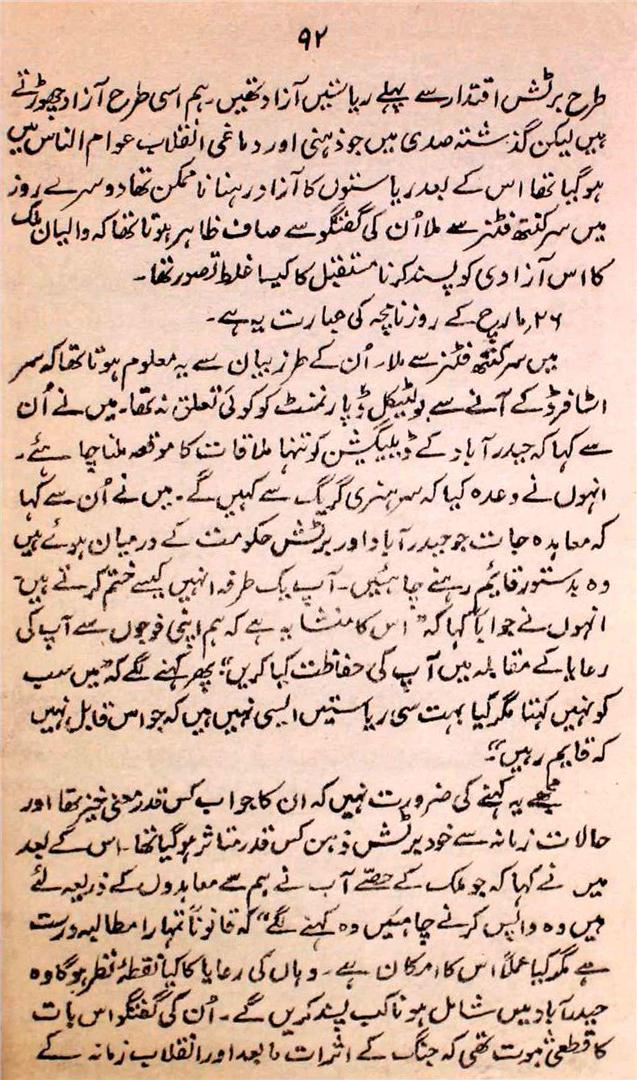 ۹۲
طرح برٹش اقتدار سے پہلے ریاستیں آزاد تھیں۔ ہم اسی طرح آزاد چھوڑتے
ہیں لیکن گذشتہ صدی میں جو ذہنی اور دماغی انقلاب عوام الناس میں
ہوگیا تھا اس کے بعد ریاستوں کا آزاد رہنا ناممکن تھا دوسرے روز
میں سرکنتھ فٹنز سے ملا اُن کی گفتگو سے صاف ظاہر ہوتا تھا کہ والیان ملک
کا اس آزادی کو پسند کرنا مستقبل کا کیسا غلط تصور تھا۔
۲۶ مارچ کے روزنامچہ کی عبارت یہ ہے۔
میں سرکنتھ فٹنز سے ملا۔ اُن کے طرز بیان سے یہ معلوم ہوتا تھا کہ سر
اسٹافرڈ کے آنے سے پولٹیکل ڈپارٹمنٹ کو کوئی تعلق نہ تھا۔ میں نے اُن
سے کہا کہ حیدرآباد کے ڈیلیگیشن کو تنہا ملاقات کا موقعہ ملنا چاہئے۔
انہوں نے وعدہ کیا کہ سرہنری گریگ سے کہیں گے۔ میں نے اُن سے کہا
کہ معاہدہ جات جو حیدرآباد اور برٹش حکومت کے درمیان ہوئے ہیں
وہ بدستور قایم رہنے چاہئیں۔ آپ یک طرفہ انہیں کیسے ختم کرتے ہیں۔
انہوں نے جواباً کہا کہ "اس کا منشا یہ ہے کہ ہم اپنی فوجوں سے آپ کی
رعایا کے مقابلہ میں آپ کی حفاظت کیا کریں"۔ پھر کہنے لگے کہ "میں سب
کو نہیں کہتا مگر کیا بہت سی ریاستیں ایسی نہیں ہیں کہ جو اس قابل نہیں
کہ قایم رہیں"۔
مجھے یہ کہنے کی ضرورت نہیں کہ ان کا جواب کس قدر معنی خیز تھا اور
حالات زمانہ سے خود برٹش ذہن کس قدر متاثر ہوگیا تھا۔ اس کے بعد
میں نے کہا کہ جو ملک کے حصے آپ نے ہم سے معاہدوں کے ذریعہ لئے
ہیں وہ واپس کرنے چاہئیں وہ کہنے لگے "کہ قانوناً تمہارا مطالبہ درست
ہے مگر کیا عملاً اس کا امکان ہے۔ وہاں کی رعایا کا کیا نقطۂ نظر ہوگا وہ
حیدرآباد میں شامل ہونا کب پسند کریں گے۔ اُن کی گفتگو اس بات
کا قطعی ثبوت تھی کہ جنگ کے اثرات مابعد اور انقلاب زمانہ کے